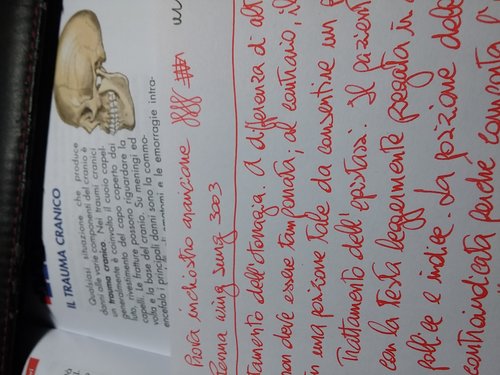 IL TRAUMA CRANICO
Qualsiasi situazione che produce
danni alle varie componenti del cranio è
un trauma cranico. Nei traumi cranici
generalmente è coinvolto il cuoio capel-
luto, rivestimento del capo coperto dai
capelli. Le fratture possono riguardare la
volta e la base del cranio. Su meningi ed
encefalo i principali danni sono la commo-
ematomi e le emorragie intra-
Prova inchiostro arancione
Penna wing sung 3003
tamento dell'otorragia. A differenza di alt
non deve essere tamponata; al contrario, il
in una posizione tale da consentire un
Trattamento dell'epistassi. Il pazient
con la testa leggermente piegata in
pollice e indice. La posizione
controindicata perché comporta l'